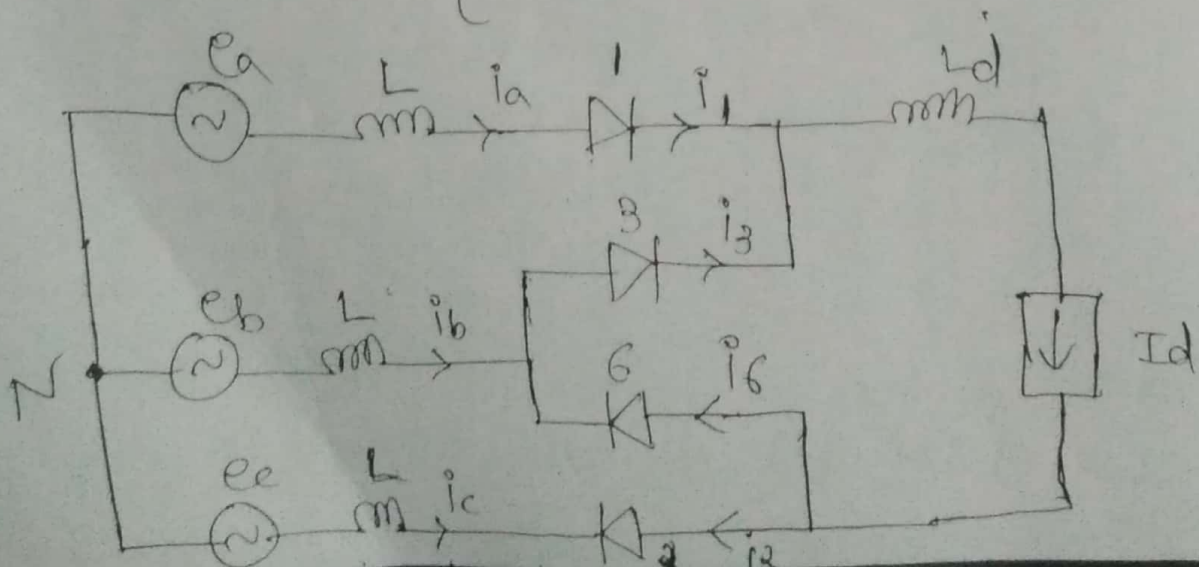 ea L ia 1 i1 Ld
3 i3
N eb L ib 6 i6 Id
ec L ic 2 i2